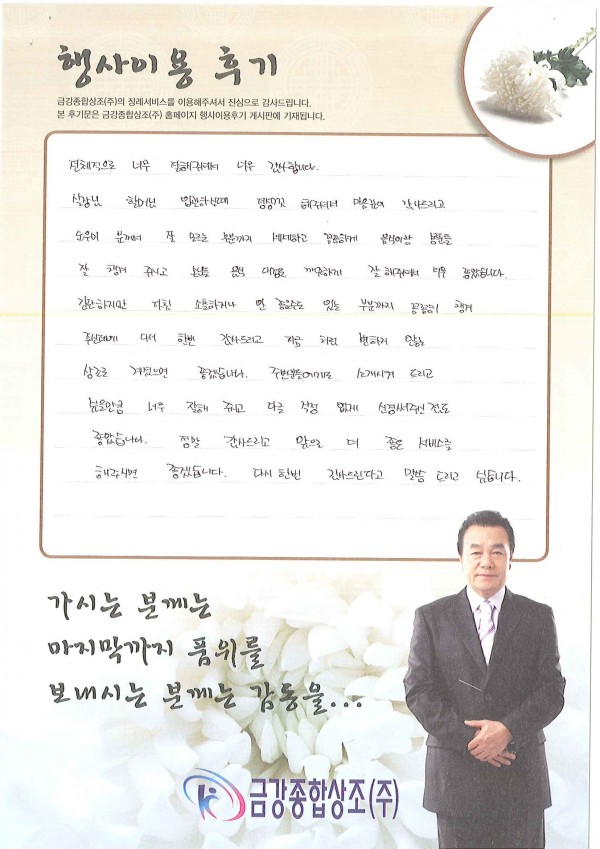 행사이용 후기
금강종합상조(주)의 장례서비스를 이용해주셔서 진심으로 감사드립니다.
본 후기문은 금강종합상조(주) 홈페이지 행사이용후기 게시판에 기재됩니다.
전체적으로 너무 잘해주셔서 너무 감사합니다.
실장님 할머님 입관하실때 정성껏 해주셔서 마음깊이 감사드리고
도우미 분께서 잘 모르는 부분까지 세세하고 꼼꼼하게 음식이랑
잘 챙겨 주시고 손님들 음식 대접도 깨끗하게 잘 해주셔서 너무 좋았습니다.
간단하지만 자칫 소홀하거나 안 좋을수도 있는 부분까지 꼼꼼히 챙겨
주신데에 다시 한번 감사드리고 지금 처럼 변하지 않는
상조로 계셨으면 좋겠습니다. 주변분들에게도 소개시켜 드리고
싶을만큼 너무 잘해 주시고 다른 걱정 없게 신경써주신 것도
좋았습니다. 정말 감사드리고 앞으로 더 좋은 서비스를
해주시면 좋겠습니다. 다시 한번 감사드린다고 말씀 드리고 싶습니다.
가시는 분께는
마지막까지 품위를
보내시는 분께는 감동을...
금강종합상조(주)